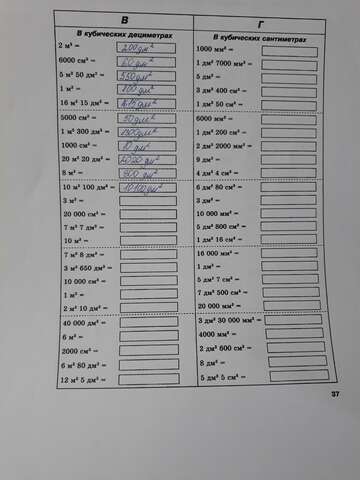 В
В кубических дециметрах
2 м³ = 200дм²
6000 см³ = 60дм²
5 м³ 50 дм³ = 550дм²
1 м³ = 100дм²
16 м³ 15 дм³ = 1615дм²
5000 см³ = 50дм²
1 м³ 300 дм³ = 1300дм²
1000 см³ = 10дм²
20 м³ 20 дм³ = 2020дм²
8 м³ = 800дм²
10 м³ 100 дм³ = 10100дм²
3 м³ =
20 000 см³ =
7 м³ 7 дм³ =
10 м³ =
7 м³ 8 дм³ =
3 м³ 650 дм³ =
10 000 см³ =
1 м³ =
2 м³ 10 дм³ =
40 000 дм³ =
6 м³ =
2000 см³ =
6 м³ 80 дм³ =
12 м³ 5 дм³ =
Г
В кубических сантиметрах
1000 мм³ =
1 дм³ 7000 мм³ =
5 дм³ =
3 дм³ 400 см³ =
1 дм³ 50 см³ =
6000 мм³ =
1 дм³ 200 см³ =
2 дм³ 2000 мм³ =
9 дм³ =
4 дм³ 4 см³ =
6 дм³ 80 см³ =
3 дм³ =
10 000 мм³ =
5 дм³ 800 см³ =
1 дм³ 16 см³ =
16 000 мм³ =
1 дм³ =
5 дм³ 7 см³ =
7 дм³ 500 см³ =
20 000 мм³ =
3 дм³ 30 000 мм³ =
4000 мм³ =
2 дм³ 600 см³ =
8 дм³ =
5 дм³ 5 см³ =
37